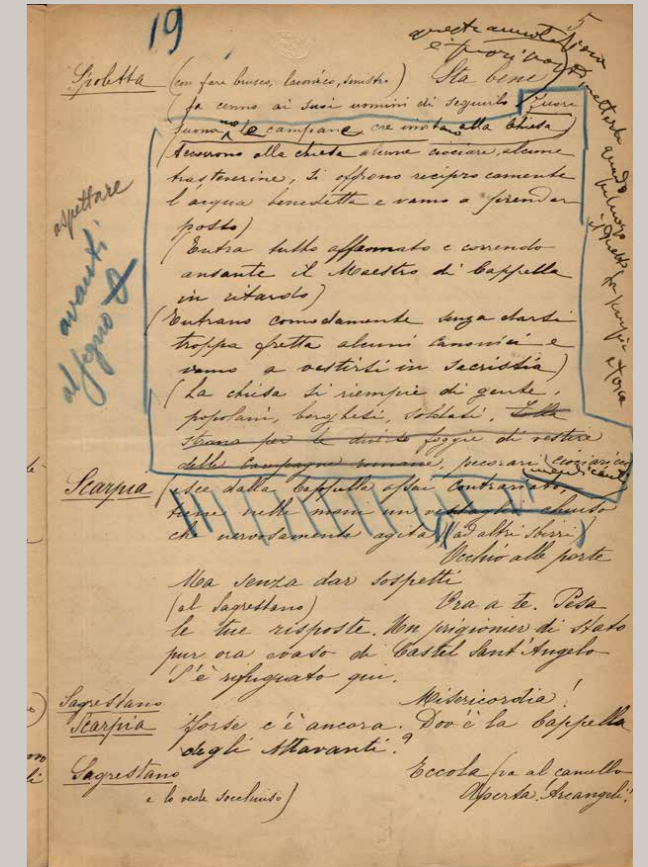 19
5
questa annotazione
è fuori
Spoletta (con fare brusco, laconico, sinistro) Sta bene
(fa cenno ai suoi uomini di seguirlo. Fuori
suonano le campane che invitano alla Chiesa)
(Accorrono alla chiesa alcune ciociare, alcune
trasteverine, si offrono reciprocamente
l'acqua benedetta e vanno a prender
posto)
(Entra tutto affannato e correndo
ansante il Maestro di Cappella
in ritardo)
(Entrano comodamente senza darsi
troppa fretta alcuni canonici e
vanno a vestirsi in sacristia)
(La chiesa si riempie di gente,
popolani, borghesi, soldati, Folla
strana per le diverse foggie di vestire
delle Campagne romane, pecorari, ciociari
mendicanti
aspettare
avanti
al segno
Scarpia (esce dalla Cappella assai contrariato,
tiene nelle mani un ventaglio chiuso
che nervosamente agita) (ad altri sbirri)
Occhio alle porte
Ma senza dar sospetti
(al Sagrestano) Ora a te. Pesa
le tue risposte. Un prigionier di Stato
pur ora evaso di Castel Sant'Angelo
S'è rifuguato qui.
Sagrestano Misericordia!
Scarpia Forse c'è ancora. Dov'è la Cappella
degli Attavanti?
Sagrestano Eccola (va al cancello
e lo vede socchiuso) Aperta! Arcangeli!